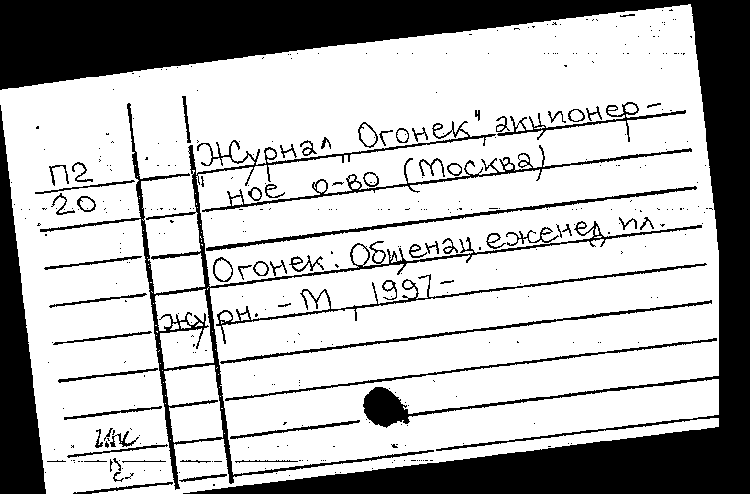 П2
20
Журнал „Огонек", акционер-
ное о-во (Москва)
Огонек: Общенац. еженед. ил.
журн. – М, 1997–